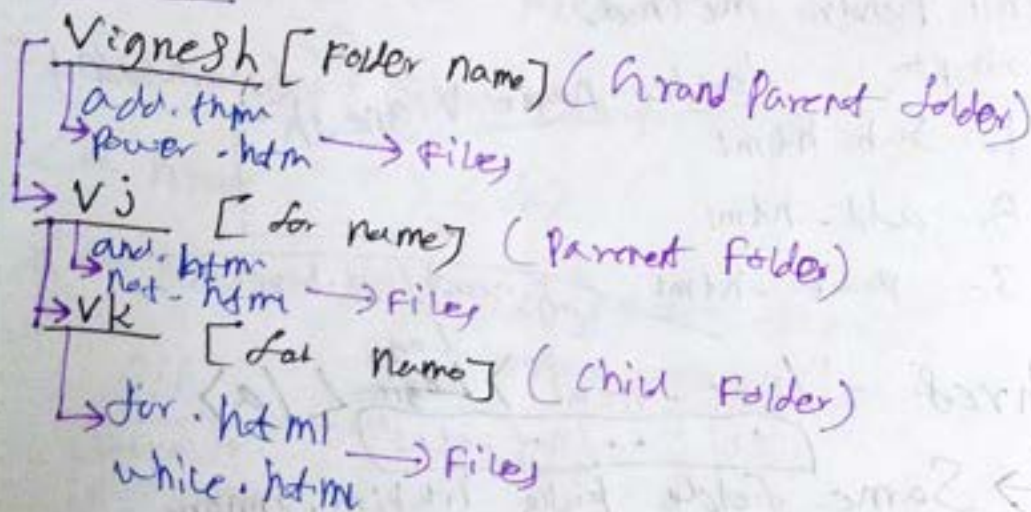 Vignesh [Folder name] (Grand Parenet folder)
add.thm
power.htm → Files
Vj [for name] (Parenet Folder)
and.htm
not.htm → Files
Vk [fol name] (Child Folder)
for.html
while.html → Files
→ Same